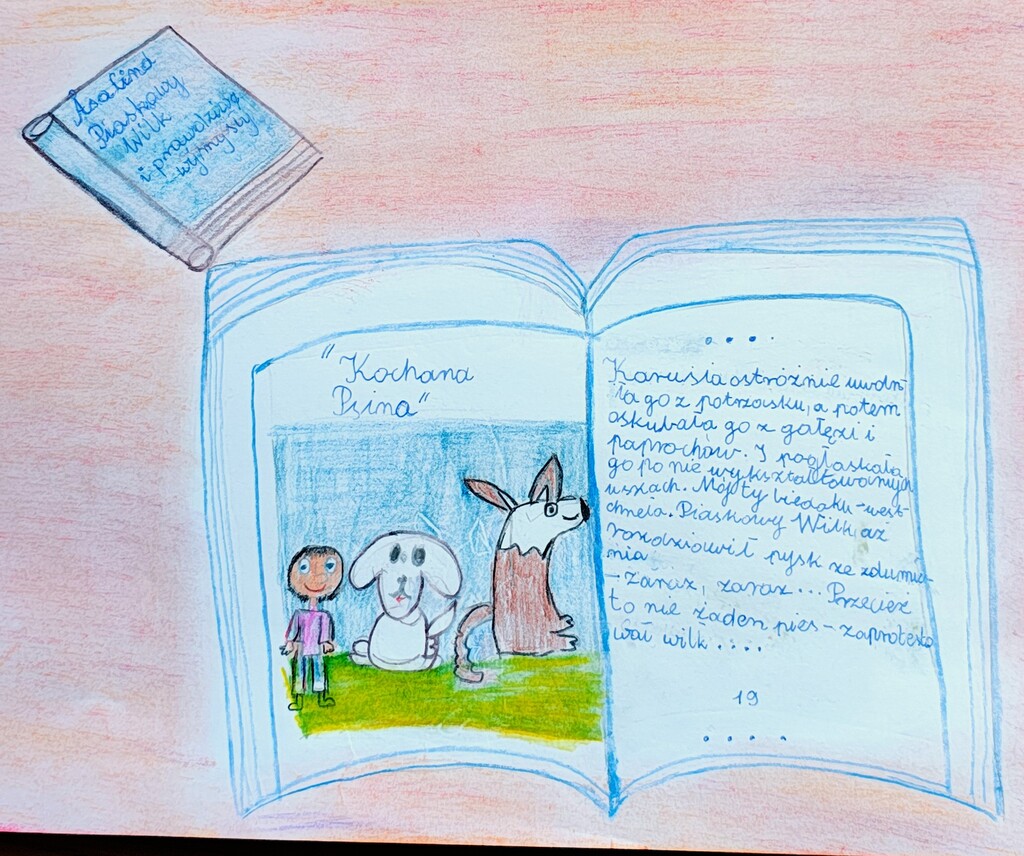 Åsa Lind
Piaskowy
Wilk
i prawdziwe
wymysły
"Kochana
Psina"
• • • •
Karusia ostrożnie uwoln-
iła go z potrzasku, a potem
oskubała go z gałęzi i
paprochów. I pogłaskała
go po nie wykształtowanych
uszkach. Mój ty biedaku - west-
chnęła. Piaskowy Wilk aż
rozdziawił pysk ze zdumie-
nia
- Zaraz, zaraz... Przecież
to nie żaden pies - zaprotesto
wał wilk....
19
• • • •